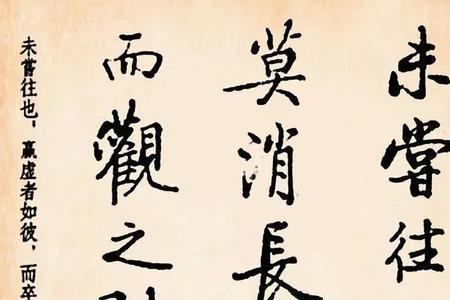 未嘗往
莫消長
而觀之
未嘗往也，贏虛者如彼，而卒